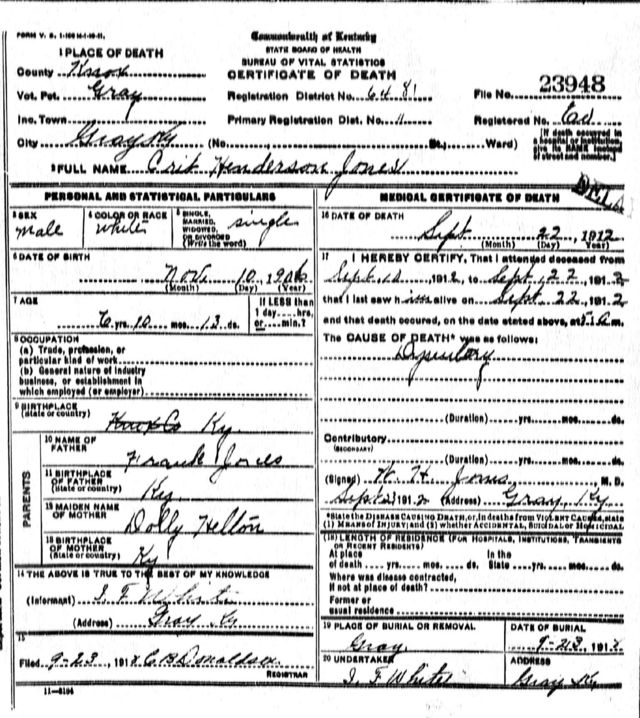 Commonwealth of Kentucky
STATE BOARD OF HEALTH
BUREAU OF VITAL STATISTICS
CERTIFICATE OF DEATH
1 PLACE OF DEATH
County Knox
Vot. Pct. Gray
Inc. Town
City Gray Ky (No. St., Ward)
Registration District No. 6481
Primary Registration Dist. No.
File No. 23948
Registered No.
[If death occurred in a hospital or institution, give its NAME instead of street and number.]
2 FULL NAME Crit Henderson Jones
PERSONAL AND STATISTICAL PARTICULARS
3 SEX male
4 COLOR OR RACE white
5 SINGLE, MARRIED, WIDOWED, OR DIVORCED (Write the word) single
6 DATE OF BIRTH
Nov. 10, 1905
(Month) (Day) (Year)
7 AGE
6 yrs. 10 mos. 13 ds.
If LESS than 1 day....hrs, or....min.?
8 OCCUPATION
(a) Trade, profession, or particular kind of work
(b) General nature of industry business, or establishment in which employed (or employer)
9 BIRTHPLACE
(State or country) Knox Co Ky.
PARENTS
10 NAME OF FATHER Frank Jones
11 BIRTHPLACE OF FATHER (State or country) Ky.
12 MAIDEN NAME OF MOTHER Dolly Helton
13 BIRTHPLACE OF MOTHER (State or country) Ky
14 THE ABOVE IS TRUE TO THE BEST OF MY KNOWLEDGE
(Informant) I. F. White
(Address) Gray Ky
15
Filed 9-23, 1912 C B Donaldson
REGISTRAR
11-3184
MEDICAL CERTIFICATE OF DEATH
16 DATE OF DEATH
Sept 22, 1912
(Month) (Day) (Year)
17 I HEREBY CERTIFY, That I attended deceased from
Sept. 10, 1912, to Sept, 22, 1912
that I last saw him alive on Sept. 22, 1912
and that death occured, on the date stated above, at a.m.
The CAUSE OF DEATH* was as follows:
(Duration) yrs. mos. ds.
Contributory
(SECONDARY)
(Duration) yrs. mos. ds.
(Signed) H. H. Jones, M. D.
Sept 1912 (Address) Gray, Ky
*State the DISEASE CAUSING DEATH, or, in deaths from VIOLENT CAUSES, state
(1) MEANS OF INJURY; and (2) whether ACCIDENTAL, SUICIDAL or HOMICIDAL
(18) LENGTH OF RESIDENCE (FOR HOSPITALS, INSTITUTIONS, TRANSIENTS OR RECENT RESIDENTS)
At place of death yrs. mos. ds. In the State yrs. mos. ds.
Where was disease contracted,
If not at place of death?
Former or
usual residence
19 PLACE OF BURIAL OR REMOVAL
Gray.
DATE OF BURIAL
9-23, 1912
20 UNDERTAKER
I. F White
ADDRESS
Gray Ky